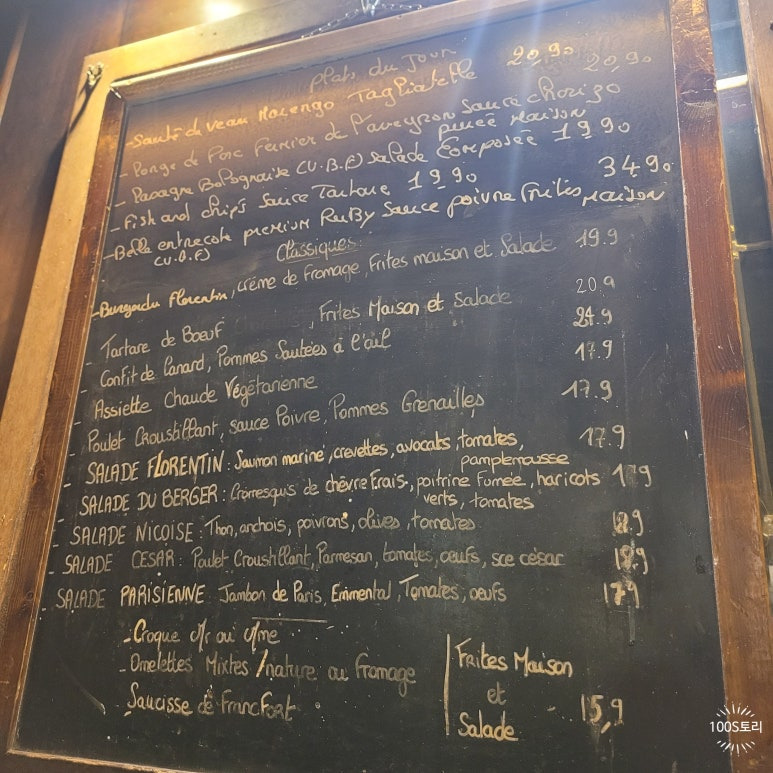 plats du Jour
-Sauté d veau Marengo Tagliatelle 20,90
-Ponge de Porc Fermier de l'aveyron Sauce chorizo 20,90
purée Maison
- Bolognaise (V.B.F) Salade Composée 19 90
-Fish and chip's Sauce Tartare 19 90
-Belle entrecote premium Sauce poivre Frites Maison 34 90
(V.B.F)
Classiques:
-Burger du Florentin, crème de Fromage, Frites maison et Salade 19.9
- Tartare de Boeuf, Frites Maison et Salade 20.9
- Confit de Canard, Pommes Sautées à l'ail
- Assiette Chaude Végétarienne 17.9
- Poulet Croustillant, sauce Poivre, Pommes Grenailles 17.9
- SALADE FLORENTIN: Saumon mariné, crevettes, avocats, tomates, 17.9
pamplemousse
- SALADE DU BERGER: Cromesquis de chèvre Frais, poitrine Fumée, haricots 17.9
verts, tomates
- SALADE NICOISE: Thon, anchois, poivrons, olives, tomates
- SALADE CESAR: Poulet Croustillant, Parmesan, tomates, oeufs, sce césar
- SALADE PARISIENNE: Jambon de Paris, Emmental, Tomates, oeufs 17.9
-Croque c/r ou c/me
-Omelettes Mixtes/nature ou Fromage
-Saucisse de Francfort
Frites Maison
et
Salade 15,9
100S토리